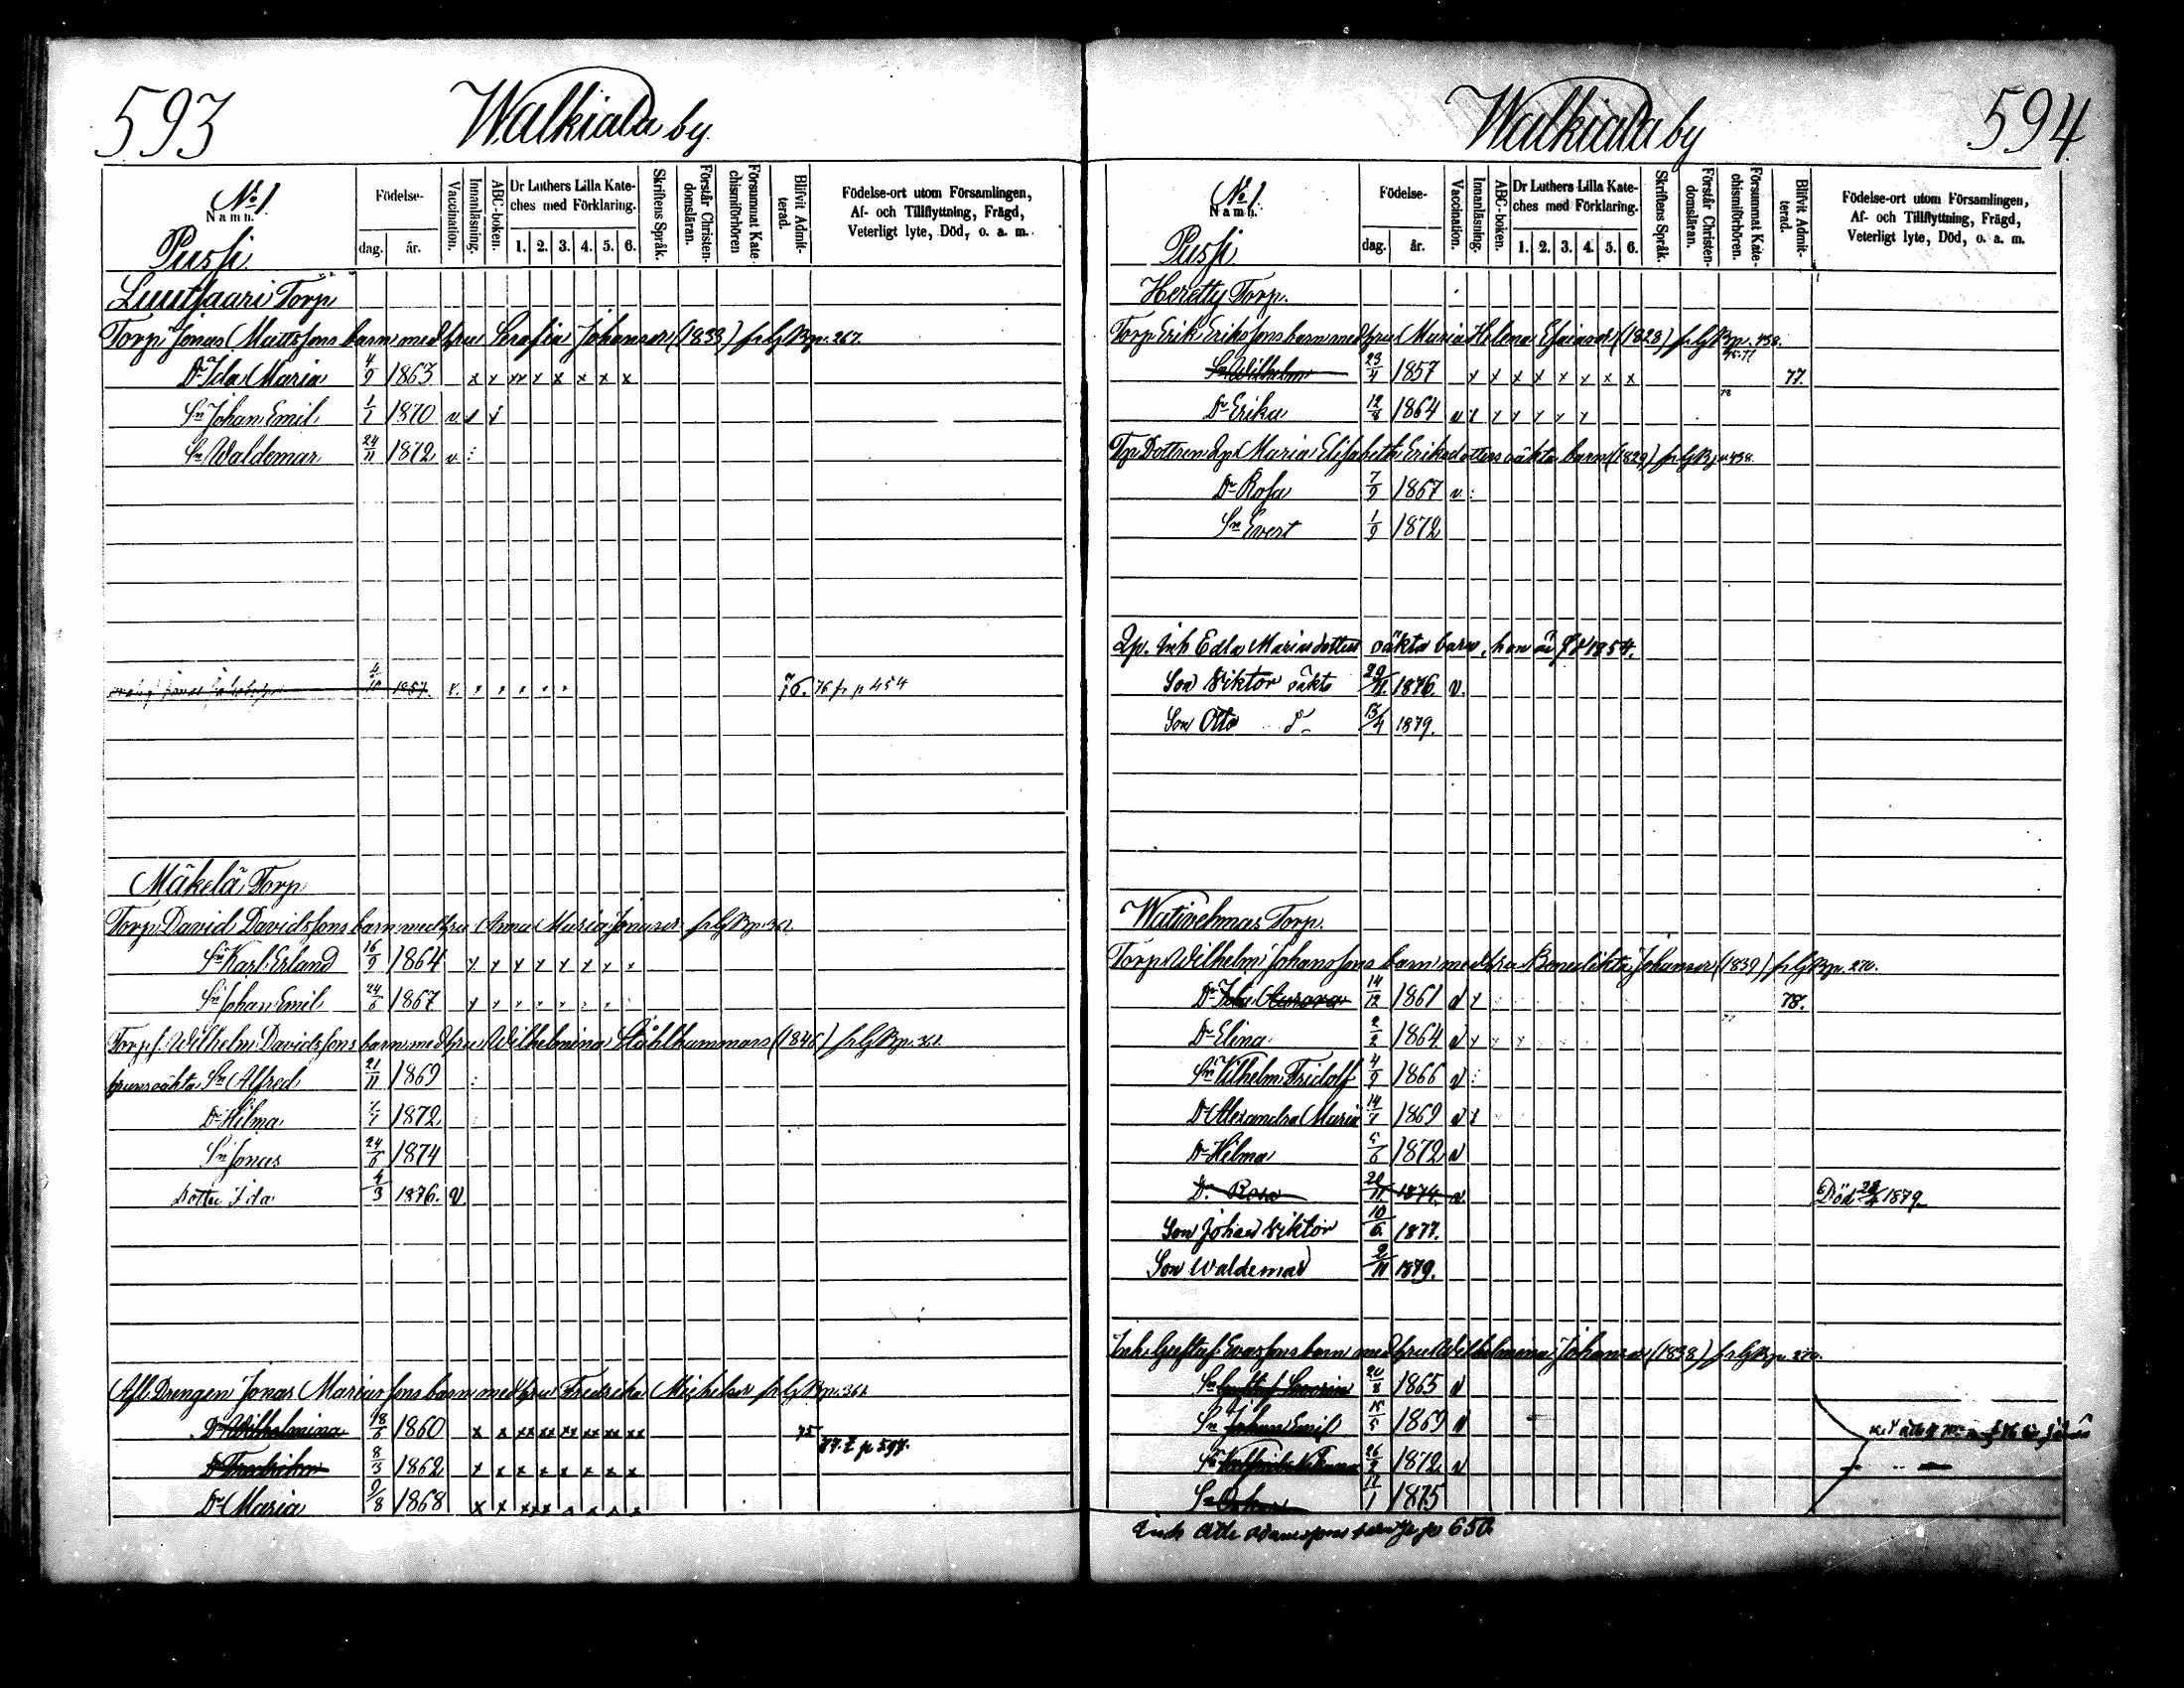 593
Walkiala by.
No 1
Namn.
Pussi
Födelse-
dag. år.
Vaccination.
Innanläsning.
ABC-boken.
Dr Luthers Lilla Kate-
ches med Förklaring.
1. 2. 3. 4. 5. 6.
Skriftens Språk.
Förstår Christen-
domsläran.
Försummat Kate-
chismiförhören
Blifvit Admit-
terad.
Födelse-ort utom Församlingen,
Af- och Tillflyttning, Frägd,
Veterligt lyte, Död, o. a. m.
Torp
Torp. Jonas Mattssons barn med hru Serafia Johansdr (1833) 267.
Dr Ida Maria 4/9 1863 x x xx x x x x x
Sn Johan Emil 1/1 1870 v. x x
Sn Waldemar 24/11 1872 v.
1857. v. 76. 76 fr p 454
Mäkelä Torp
Torp. David Davidssons barn med hru Anna Maria Jonasdr
Sn Karl Erland 16/9 1864 x x x x x x x x
Sn Johan Emil 24/6 1867
Torp s. Wilhelm Davidssons barn med hru Wilhelmina Ståhlhammars (1846)
hruns oäkta Sn Alfred 21/11 1869
Dr Hilma 1872
Sn Jonas 24/6 1874
Dotter Ida 4/3 1876. v.
Afl. Drengen Jonas Mariassons barn med hru Fredrika Michelsdr
Dr Wilhelmina 1860 x x xx xx xx xx xx xx 75
Dr Fredrika 8/3 1862 x x x x x x x x 77. t p 597.
Dr Maria 9/8 1868 x x xx x x x x x
594.
Walkiala by
No 1
Namn.
Pussi
Födelse-
dag. år.
Vaccination.
Innanläsning.
ABC-boken.
Dr Luthers Lilla Kate-
ches med Förklaring.
1. 2. 3. 4. 5. 6.
Skriftens Språk.
Förstår Christen-
domsläran.
Försummat Kate-
chismiförhören.
Blifvit Admit-
terad.
Födelse-ort utom Församlingen,
Af- och Tillflyttning, Frägd,
Veterligt lyte, Död, o. a. m.
Heretty Torp.
Torp. Erik Erikssons barn med hru Maria Helena Esaiasdr (1828) 458.
Sn Wilhelm 23/4 1857 x x x x x x x x 77.
Dr Erika 12/8 1864 v x x x x x x
Maria Elisabeth Eriksdotters oäkta barn (1829) 458.
Dr Rosa 7/9 1867 v.
Sn Evert 1/9 1872
Qp. Inh Edla Mariasdotters oäkta barn, hon är f 1854.
Son Viktor oäkta 29/11 1876. v.
Son Otto d- 13/4 1879.
Torp.
Torp. Wilhelm Johanssons barn med hru Benedikta Johansdr (1839) 270.
Dr Ida Aurora 14/12 1861 v x 78.
Dr Elina 2/2 1864 v x
Sn Wilhelm Fridolf 4/9 1866 v
Dr Alexandra Maria 14/7 1869 v x
Dr Hilma 5/6 1872 v
Dr. Rosa 20/11 1874. v Död 1879
Son Johan Viktor 10/6 1877.
Son Waldemar 9/11 1879.
Inh. Gustaf Evassons barn med hru Wilhelmina Johansdr (1838) 270.
Sn Gustaf 20/8 1865 v
Sn Johan Emil 15/5 1869 v
Sn 26/9 1872 v
Sn Oskar 17/1 1875
Inh barn 650